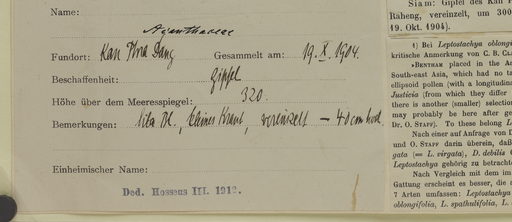 Name:
Acanthaceae
Fundort: Kau Phra Dang Gesammelt am: 19. X. 1904.
Beschaffenheit: Gipfel
Höhe über dem Meeresspiegel: 320.
Bemerkungen: lila Bl., kleines Kraut, vereinzelt — 40 cm hoch.
Einheimischer Name:
Ded. Hosseus III. 1912.
Siam: Gipfel des Kau P
Raheng, vereinzelt, um 300
19. Okt. 1904).
1) Bei Leptostachya oblongi
kritische Anmerkung von C. B. CL
»BENTHAM placed in the A
South-east Asia, which had no ta
ellipsoid pollen (with a longitudina
Justicia (from which they differ
there is another (smaller) selection
may probably be here after ge
Dr. O. STAPF). To these belong L
Nach einer auf Anfrage von D
und O. STAPF darin überein, daß
gata (= L. virgata), D. debilis
Leptostachya gehörig zu betrachte
Nach Vergleich mit dem im
Gattung erscheint es besser, die a
7 Arten umfassen: Leptostachya
oblongifolia, L. spathulifolia, L.